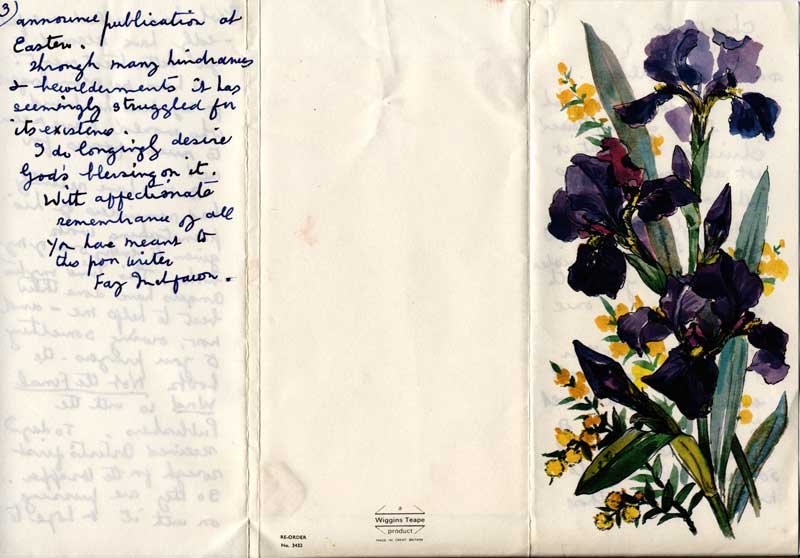 3)
announce publication at
Easter.
Through many hindrances
& bewilderments it has
seemingly struggled for
its existence.
I do longingly desire
God's blessing on it.
With affectionate
remembrance of all
you have meant to
this poor writer
Fay Inchfawn.
RE-ORDER
No. 3432
a
Wiggins Teape
product
MADE IN GREAT BRITAIN